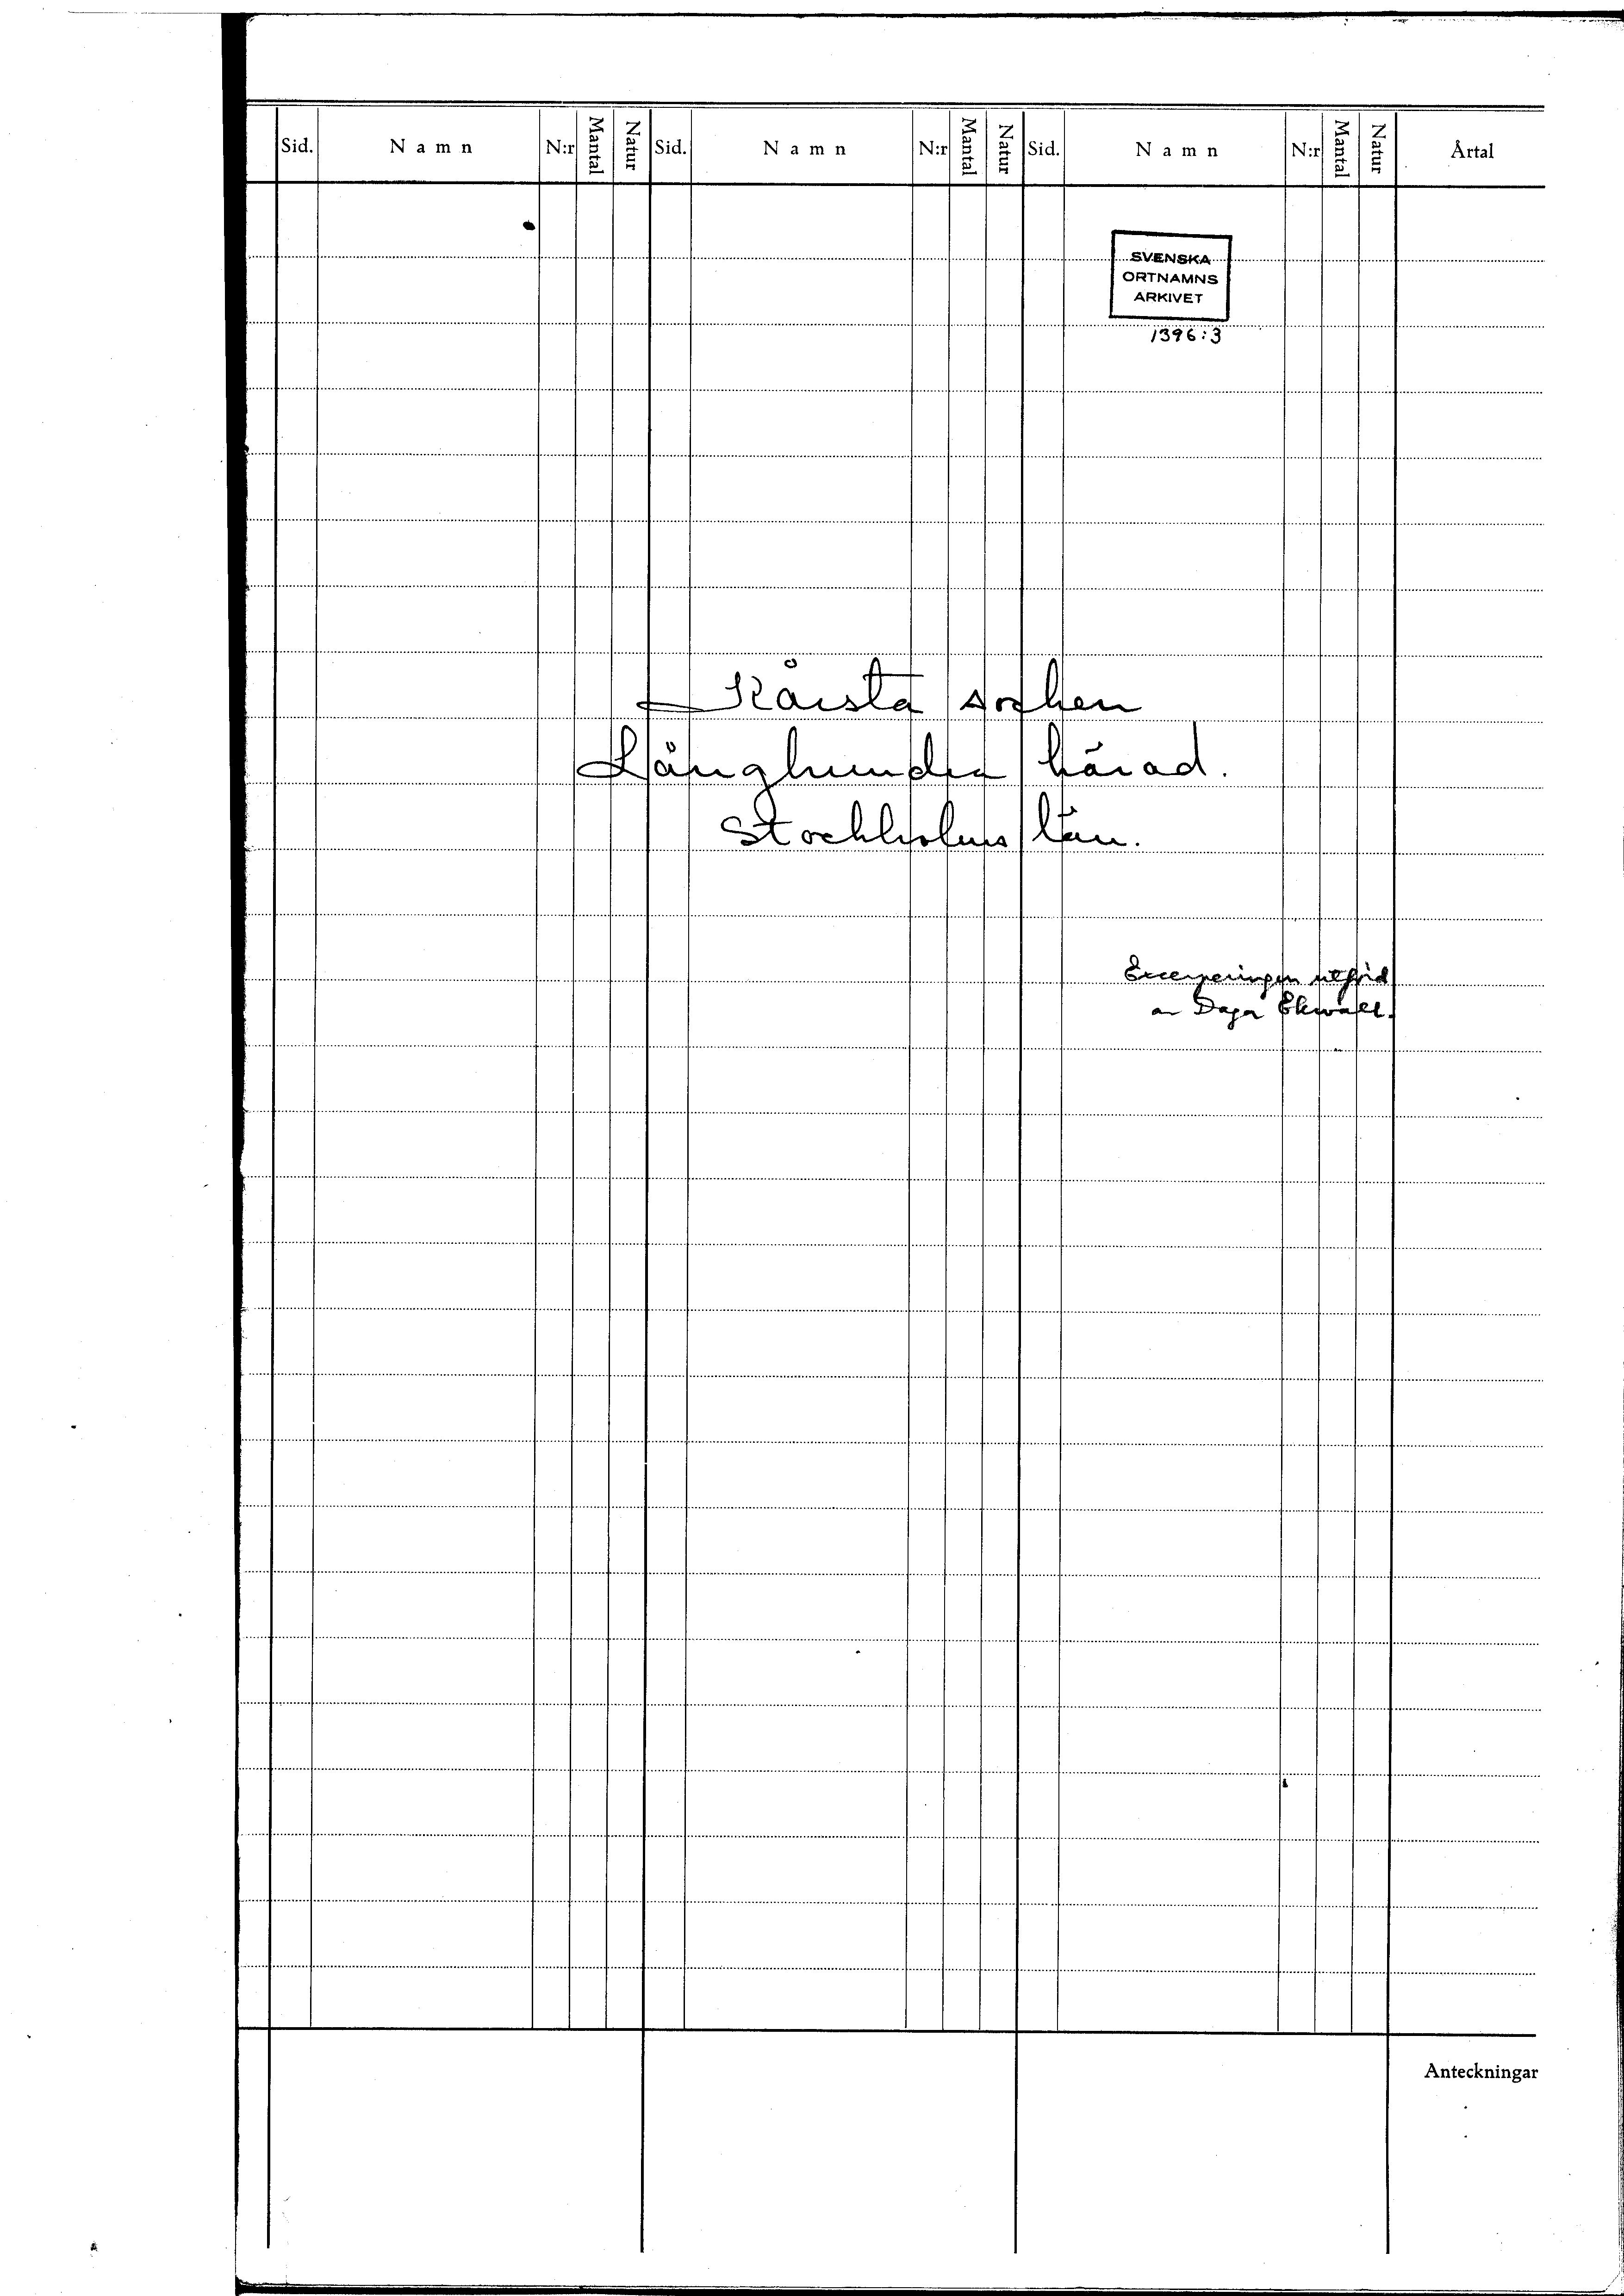 Sid. Namn N:r Mantal Natur Sid. Namn N:r Mantal Natur Sid. Namn N:r Mantal Natur Årtal
SVENSKA
ORTNAMNS
ARKIVET
1396:3
Kårsta socken
Långhundra härad.
Stockholms län.
Excerperingen utförd
av Daga Ekwall.
Anteckningar